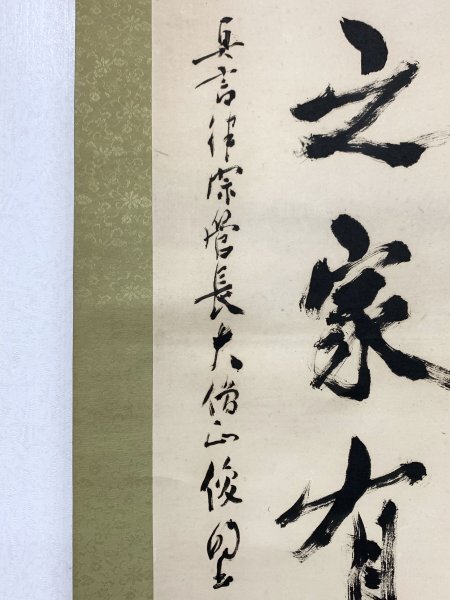 之家有
真言律宗管長大僧正俊